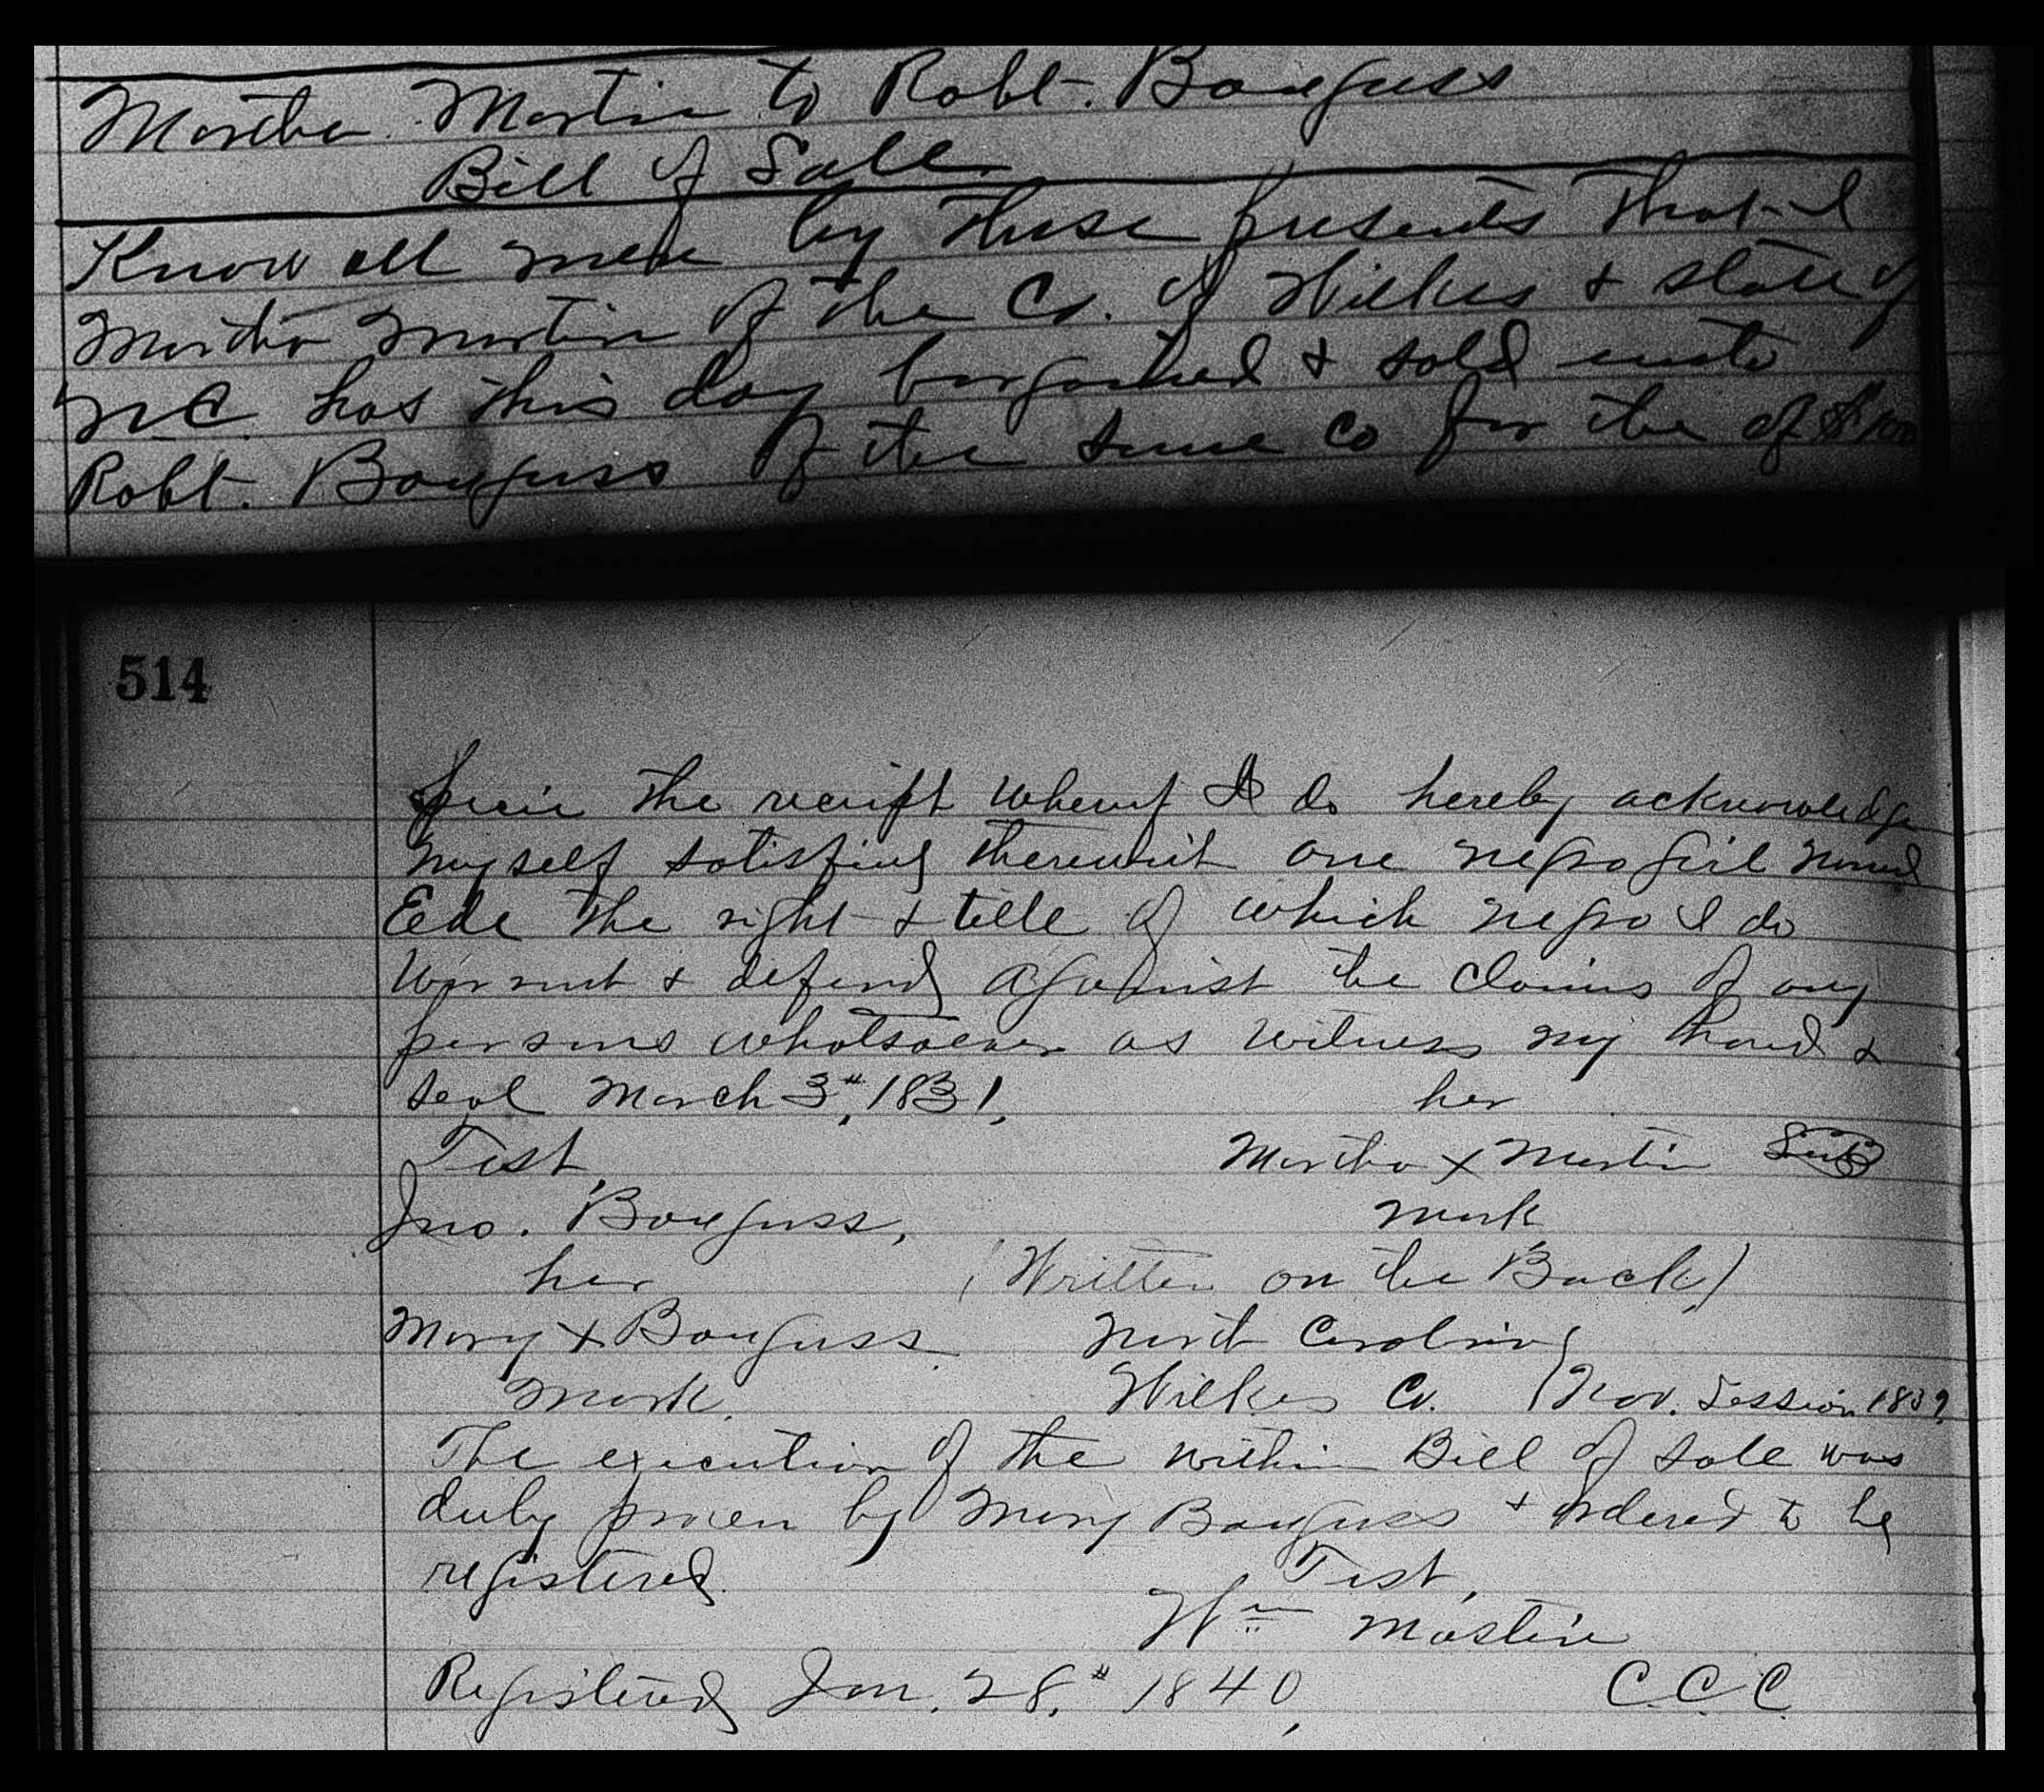 Martha Martin to Robt. Bauguss
Bill of Sale
Know all men by these presents that I
Martha Martin of the Co. of Wilkes & state of
N.C. has this day bargained & sold unto
Robt. Bauguss of the same Co for the of $100
514
the receipt whereof I do hereby acknowledge
myself satisfied therewith one negro girl named
Ede the right & title of which negro I do
warrant & defend against the claims of any
persons whatsoever as witness my hand &
seal March 3", 1831.
her
Test,
Martha X Martin Seal
Jno. Bauguss,
mark
her
(Written on the Back)
Mary X Bauguss
North Carolina
mark.
Wilkes Co. (Nov. Session 1839.
The execution of the within Bill of Sale was
duly proven by Mary Bauguss & ordered to be
registered.
Test,
Wm Mastin
Registered Jan. 28," 1840,
C.C.C.